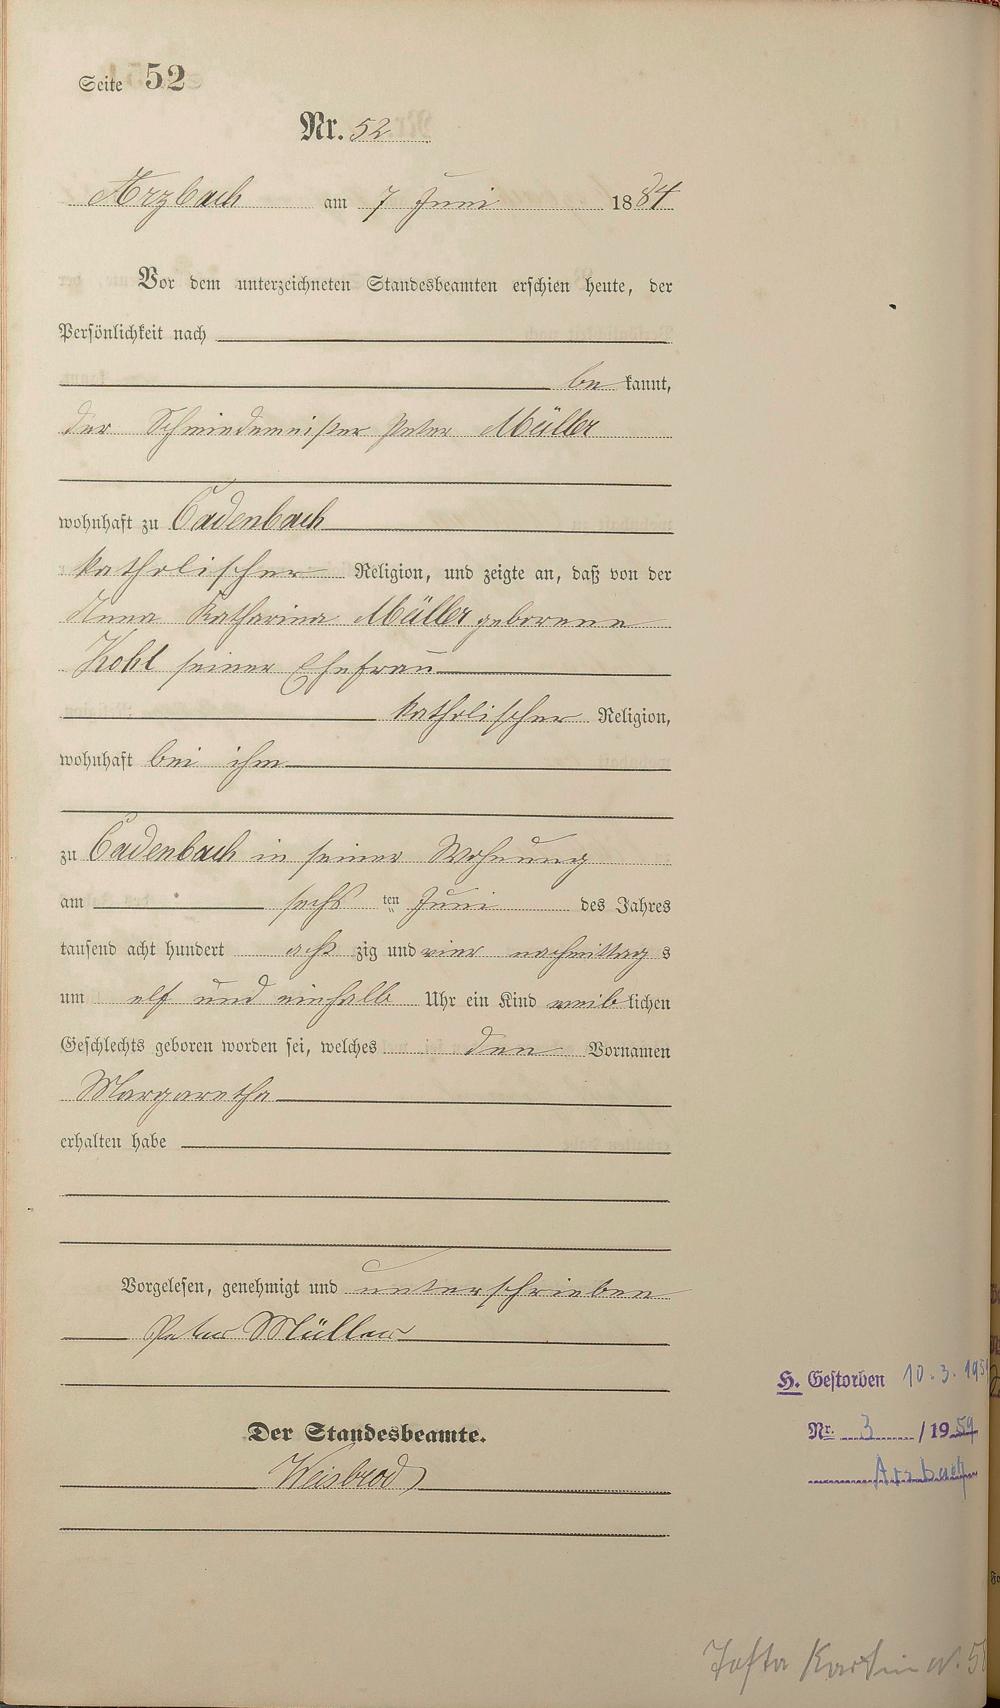 Seite 52
Nr. 52
Arzbach am 7 Juni 1884
Vor dem unterzeichneten Standesbeamten erschien heute, der
Persönlichkeit nach
be kannt,
der Schmiedemeister Peter Müller
wohnhaft zu Cadenbach
katholischer Religion, und zeigte an, daß von der
Anna Katharina Müller geborene
Kohl seiner Ehefrau
katholischer Religion,
wohnhaft bei ihm
zu Cadenbach in seiner Wohnung
am sechs ten Juni des Jahres
tausend acht hundert acht zig und vier nachmittag s
um elf und einhalb Uhr ein Kind weib lichen
Geschlechts geboren worden sei, welches den Vornamen
Margaretha
erhalten habe
Vorgelesen, genehmigt und unterschrieben
Peter Müller
H. Gestorben 10.3.195
Der Standesbeamte.
Nr. 3 /1959
Weisbrod
Arzbach